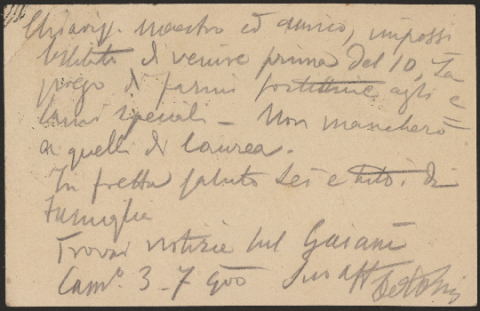 Chiariss. maestro ed amico, impossi
bilitato di venire prima del 10, La
prego di farmi sostituire agli e=
sami speciali – Non mancherò
a quelli di laurea.
In fretta saluto Lei e tutti di
famiglia
Trovai notizie sul Gaiani
Cam° 3-7 900 Suo aff